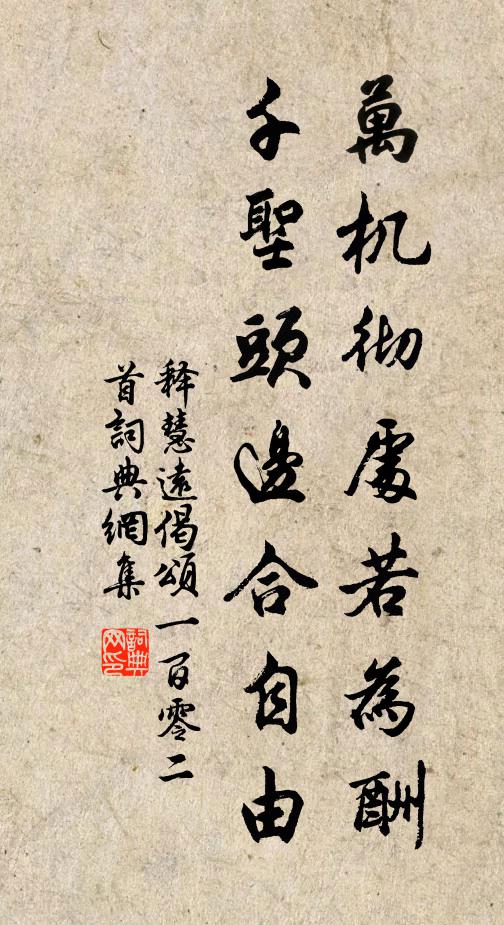 萬机彻處若為酬
千聖頭邊合自由
释慧遠偈頌一百零二
首詞典網集
詞典网印